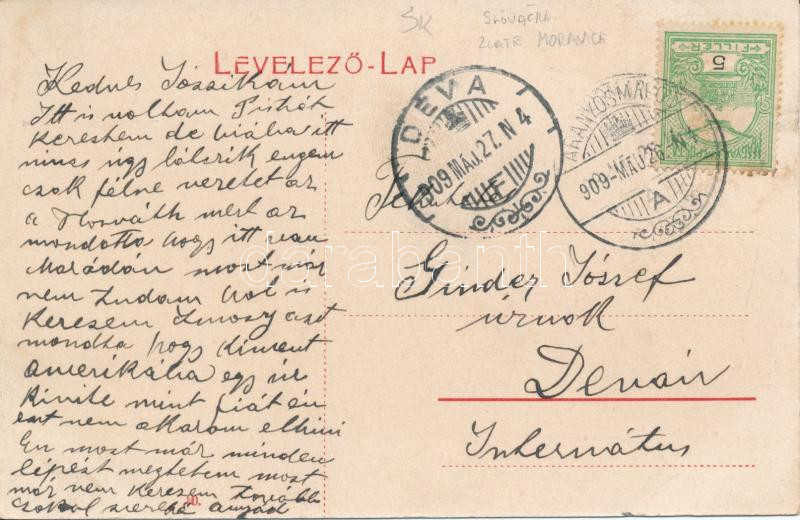 ŠK
SLOVAČKA
ZLATÉ MORAVCE
LEVELEZŐ-LAP
Kedves Józsikám
Itt is voltam Pisták
kerestem de hiába itt
nincs úgy látszik engem
csak félre vezetet az
a Horváth mert az
mondotta hogy itt van
Marádán most már
nem tudom hol is
keresem Zmossy azt
mondta hogy kiment
amerikába egy úr
kivite mint fiát én
ezt nem akarom elhini
Én most már minden
lépést megtetem most
már nem keresem tovább
csokol szerető anyád
DÉVA
909 MÁJ. 27. N 4
F
ARANYOSMARÓT
909 MÁJ 26
A
5
FILLÉR
Tekintetes
Ginder József
úrnok
Déván
Internátus
darabanth